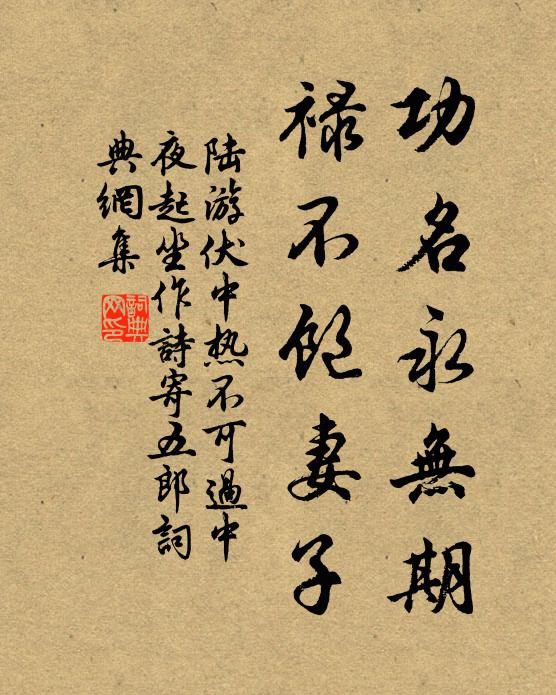 功名永無期
祿不飽妻子
陆游伏中热不可過中
夜起坐作詩寄五郎詞
典網集
詞典
网印